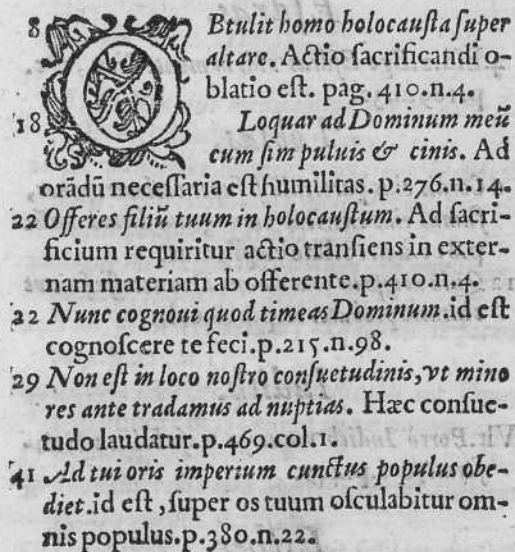 8 OBtulit homo holocausta super
altare. Actio sacrificandi o-
blatio est. pag. 410.n.4.
18 Loquar ad Dominum meũ
cum sim puluis & cinis. Ad
orãdũ necessaria est humilitas. p.276.n.14.
22 Offeres filiũ tuum in holocaustum. Ad sacri-
ficium requiritur actio transiens in exter-
nam materiam ab offerente.p.410.n.4.
22 Nunc cognoui quod timeas Dominum.id est
cognoscere te feci.p.215.n.98.
29 Non est in loco nostro consuetudinis, vt mino
res ante tradamus ad nuptias. Hæc consue-
tudo laudatur.p.469.col.1.
41 Ad tui oris imperium cunctus populus obe-
diet.id est, super os tuum osculabitur om-
nis populus.p.380.n.22.